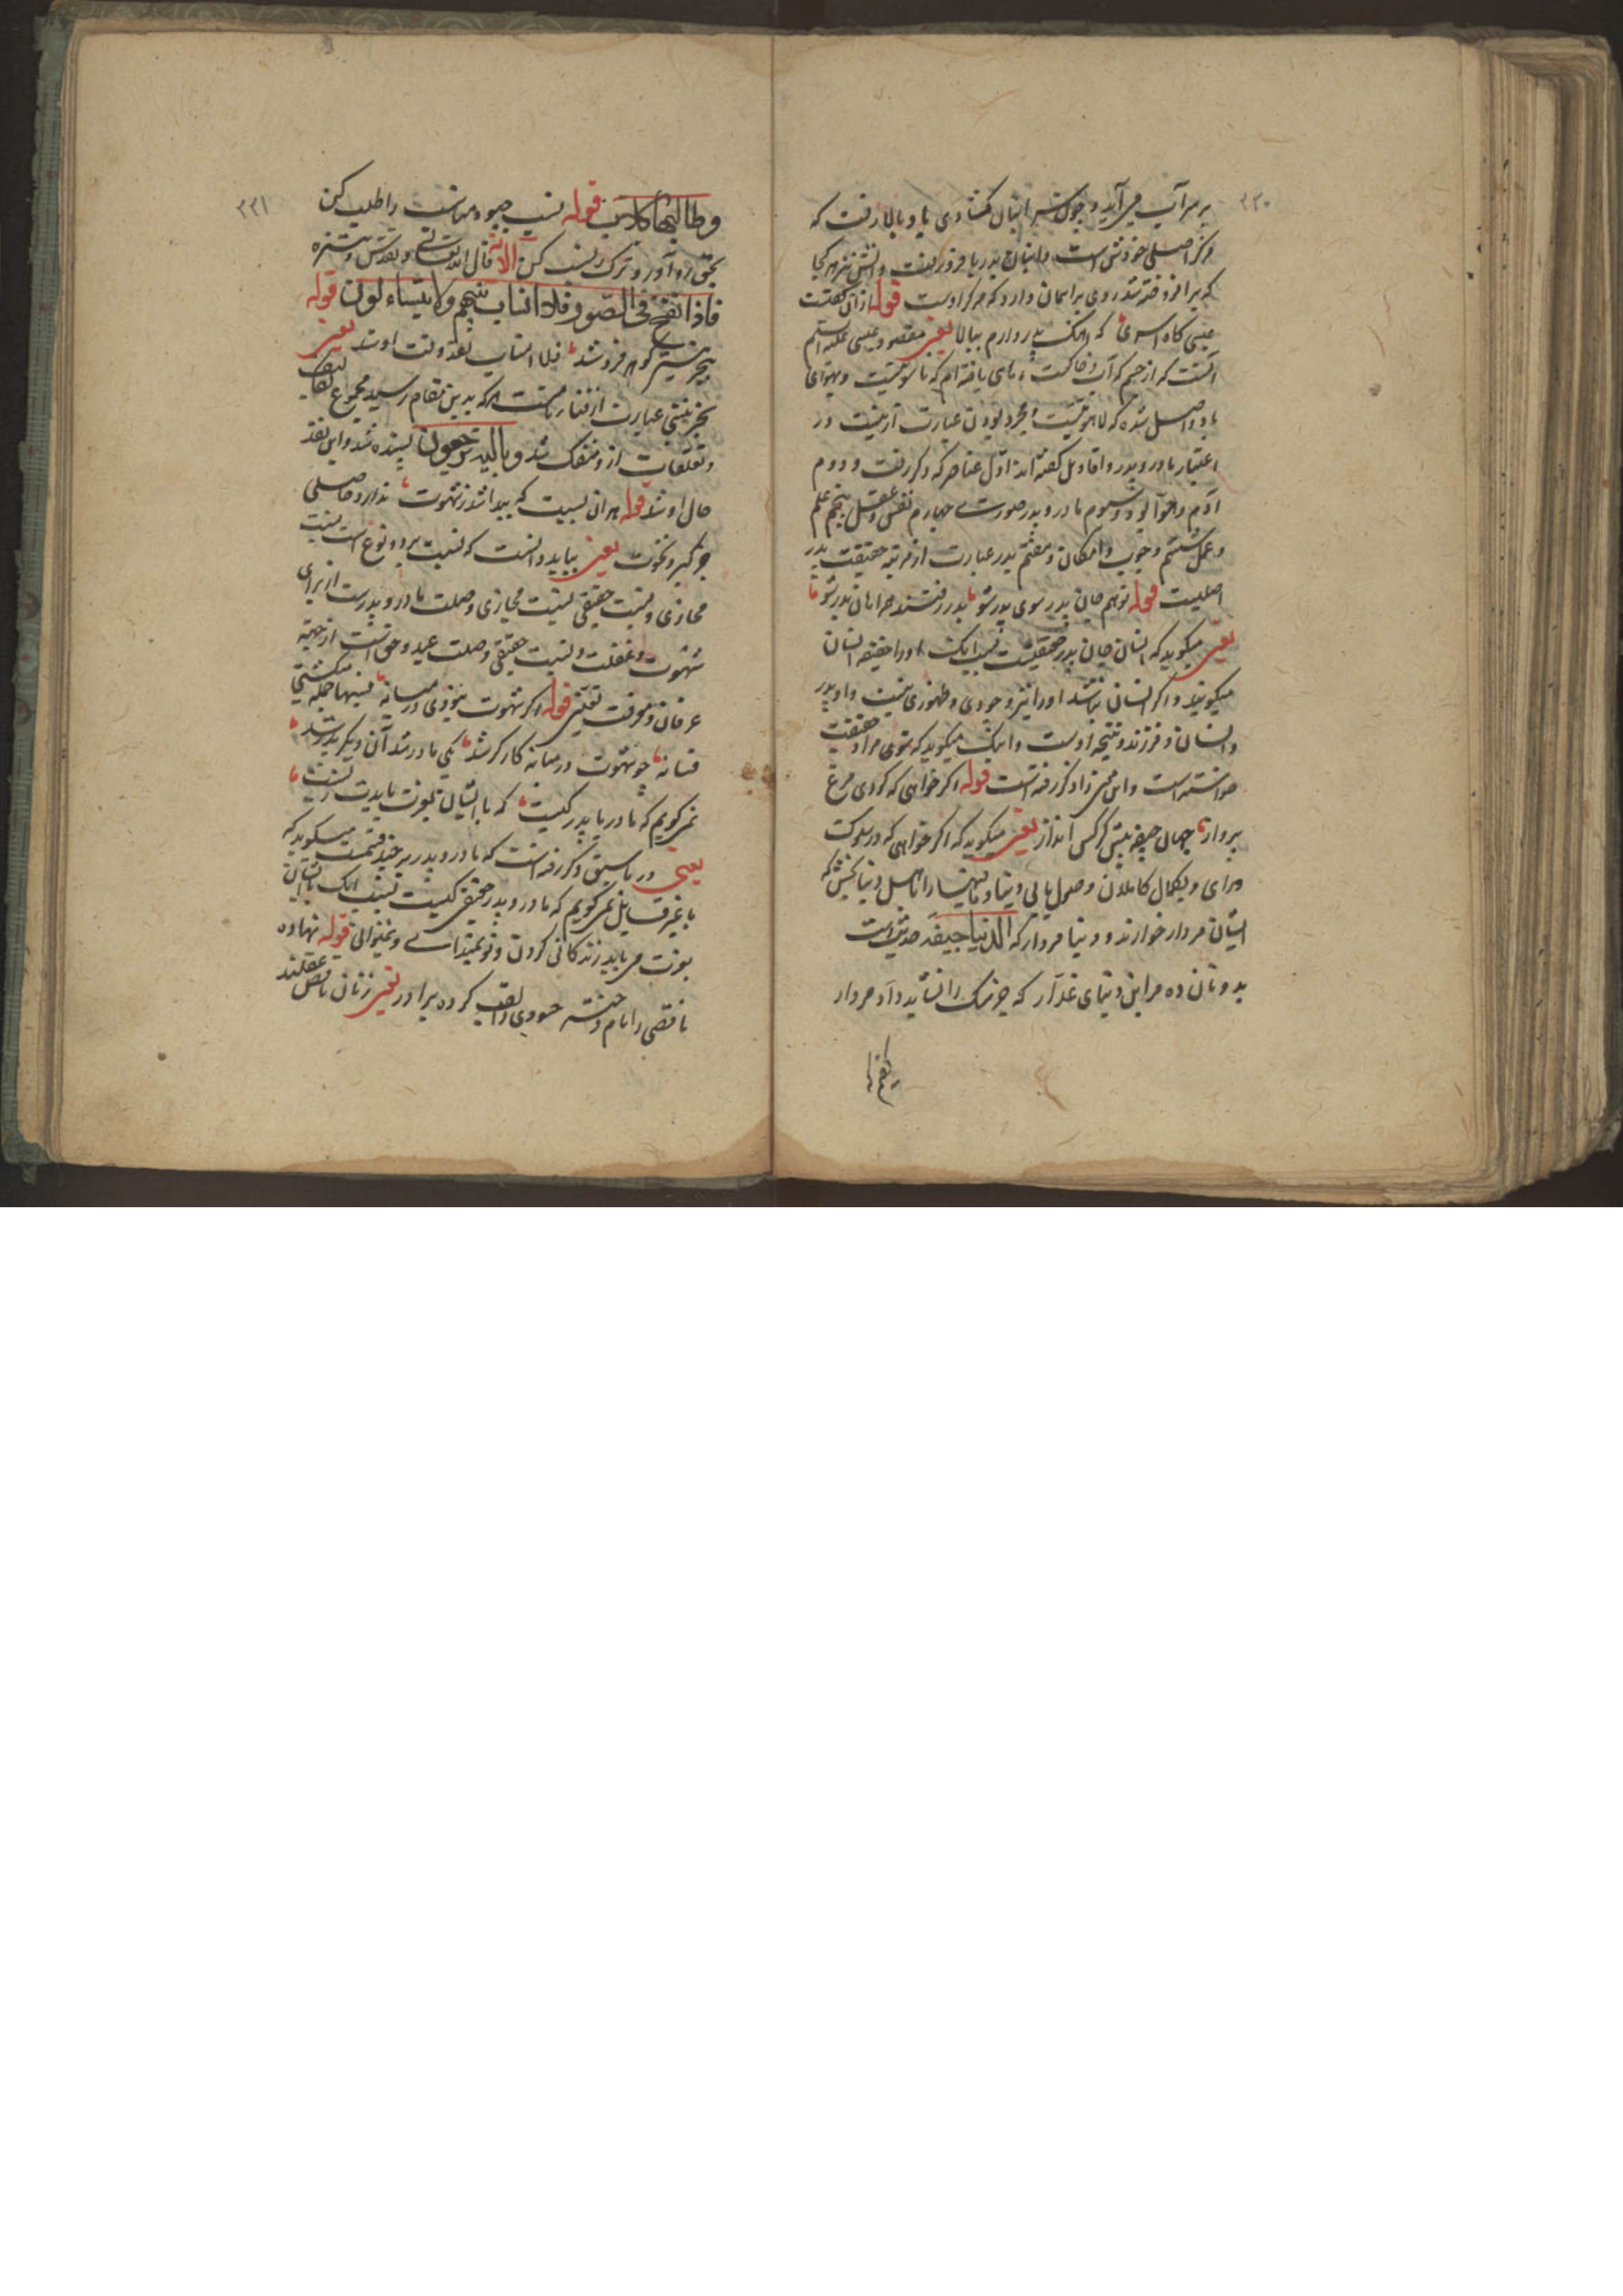 ۲۲۰
بر سر آب می آید و چون سر انبان کشادی با و بالا رفت که
مرکز اصلی خودش است و انبان بدریا فرو رفت و آتش نیز هر کجا
که بر افروخته شد روی بر آسمان دارد که مرکز اوست قوله ازان گفتست
عیسی گاه اسری که آهنگ پدر دارم ببالا یعنی مقصود عیسی علیه السلم
آنست که از جسم که آب و خاکست رهای یافته ام که ناسوتیست و بهوای
با و واصل شده که لاهوتیست و مجرد بودن عبارت ازینست و در
اعتبار مادر و پدر اقاویل گفته اند اول عناصر که ذکر رفت و دوم
آدم و حوا بود و سوم مادر و پدر صورت چهارم نفس و عقل پنجم علم
و عمل ششم وجوب و امکان و هفتم پدر عبارت از مرتبه حقیقت پدر
اصلیست قوله تو هم جان پدر سوی پدر شو بدر رفتند همراهان بدر شو
یعنی میگوید که انسان جان پدر حقیقیست بسبب آنک او را حقیقه انسان
میگویند و اگر انسان نباشد او را نیز وجودی و ظهوری نیست و او پدر
و انسان فرزند و نتیجه اوست و آنک میگوید که توی مراد حقیقت
خواسته است و این مجمر زاد ذکر رفته است قوله اگر خواهی که گردی مرغ
پرواز جهان جیفه پیش کرکس انداز یعنی میگوید که اگر خواهی که در سلوک
در ای و بکمال کاملان وصول یابی دنیا و مافیها را باهل دنیا بخش که
ایشان مردار خوارند و دنیا مردار که الدنیا جیفة حدیث است
بدونان ده مر این دنیای غدار که جز سک را نشاید داد مردار
۲۲۱
وطالبها كلاب قوله نسب چبود مناسب را طلب کن
بحق رو آور و ترک نسب کن الآیة قال الله تعالی و تقدس و تنزه
فاذا نفخ فی الصور فلا انساب بینهم ولا یتساءلون قوله
ببحر نیستی هر کو فرو شد فلا انساب نقد وقت او شد یعنی
بحر نیستی عبارت از فناست هر که بدین مقام رسید مجموع
و تعلقات ازو منفک شد و بالیه ترجعون پسنده شد و این نقد
حال او شد قوله هر ان نسبت که پیدا شد ز شهوت ندارد حاصلی
جز کبر و نخوت یعنی بباید دانست که نسبت بر دو نوع است نسبت
مجازی و نسبت حقیقی نسبت مجازی وصلت مادر و پدرست از برای
شهوت و غفلت و نسبت حقیقی وصلت عبد و حق است از جهة
عرفان و معرفت قوله اگر شهوت نبودی در میانه نسبها جمله میکشتی
فسانه چو شهوت در میانه کارگر شد یکی مادر شد آن دیگر پدر شد
نمیگویم که مادر یا پدر کیست که با ایشان بعزت بایدت زیست
یعنی در ما سبق ذکر رفته است که مادر و پدر بر چند قسمت میگوید که
نمیگویم که مادر و پدر حقیقی کیست بسبب آنک با ایشان
بعزت می باید زندگانی کردن و تو نمیدانی و نمیتوانی قوله نهاده
ناقصی را نام خواهر حسودی را لقب کرده برادر یعنی زنان ناقص عقلند